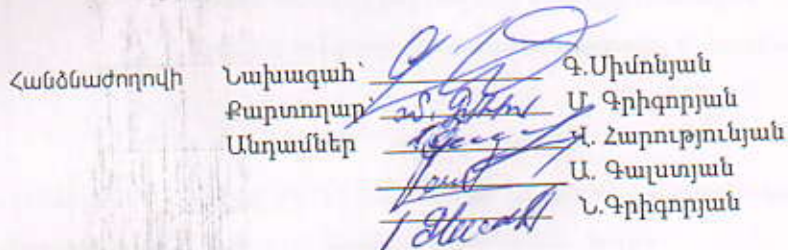 Հանձնաժողովի Նախագահ՝ Գ.Սիմոնյան
Քարտուղար՝ Մ. Գրիգորյան
Անդամներ Վ. Հարությունյան
Ա. Գալստյան
Ն.Գրիգորյան